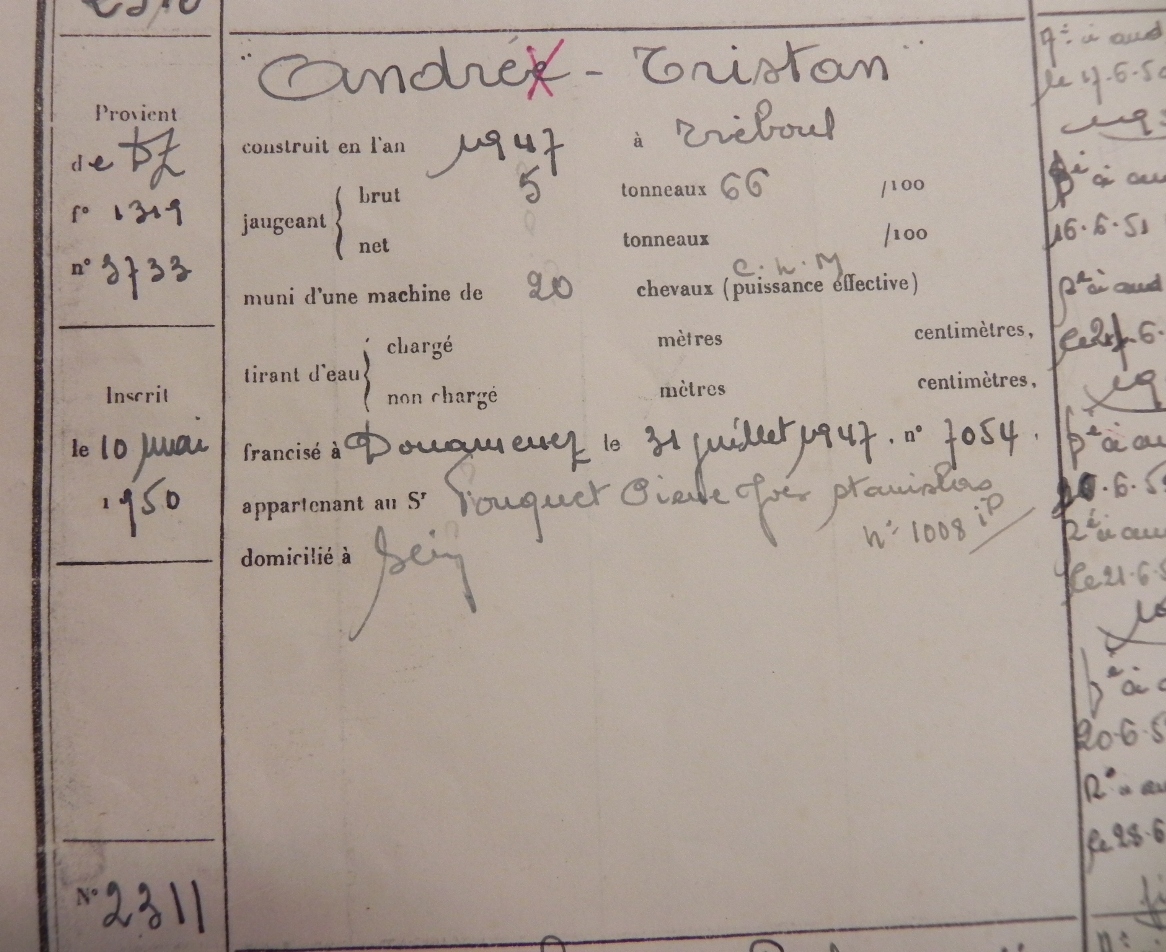 Provient
de DZ
f° 1319
n° 3733
Inscrit
le 10 mai
1950
N° 2311
"Andrée - Tristan"
construit en l'an 1947 à Tréboul
jaugeant brut 5 tonneaux 66 /100
net tonneaux /100
C. h. M
muni d'une machine de 20 chevaux (puissance effective)
tirant d'eau chargé mètres centimètres,
non chargé mètres centimètres,
francisé à Douarnenez le 31 juillet 1947. n° 7054.
appartenant au Sr Fouquet Pierre Yves Stanislas
n° 1008 iP
domicilié à Sein
le 17-6-50
pé à
16.6.51
pé à
pé à
20.6.5
le 21.6.5
pé à
20.6.5
le 28.6